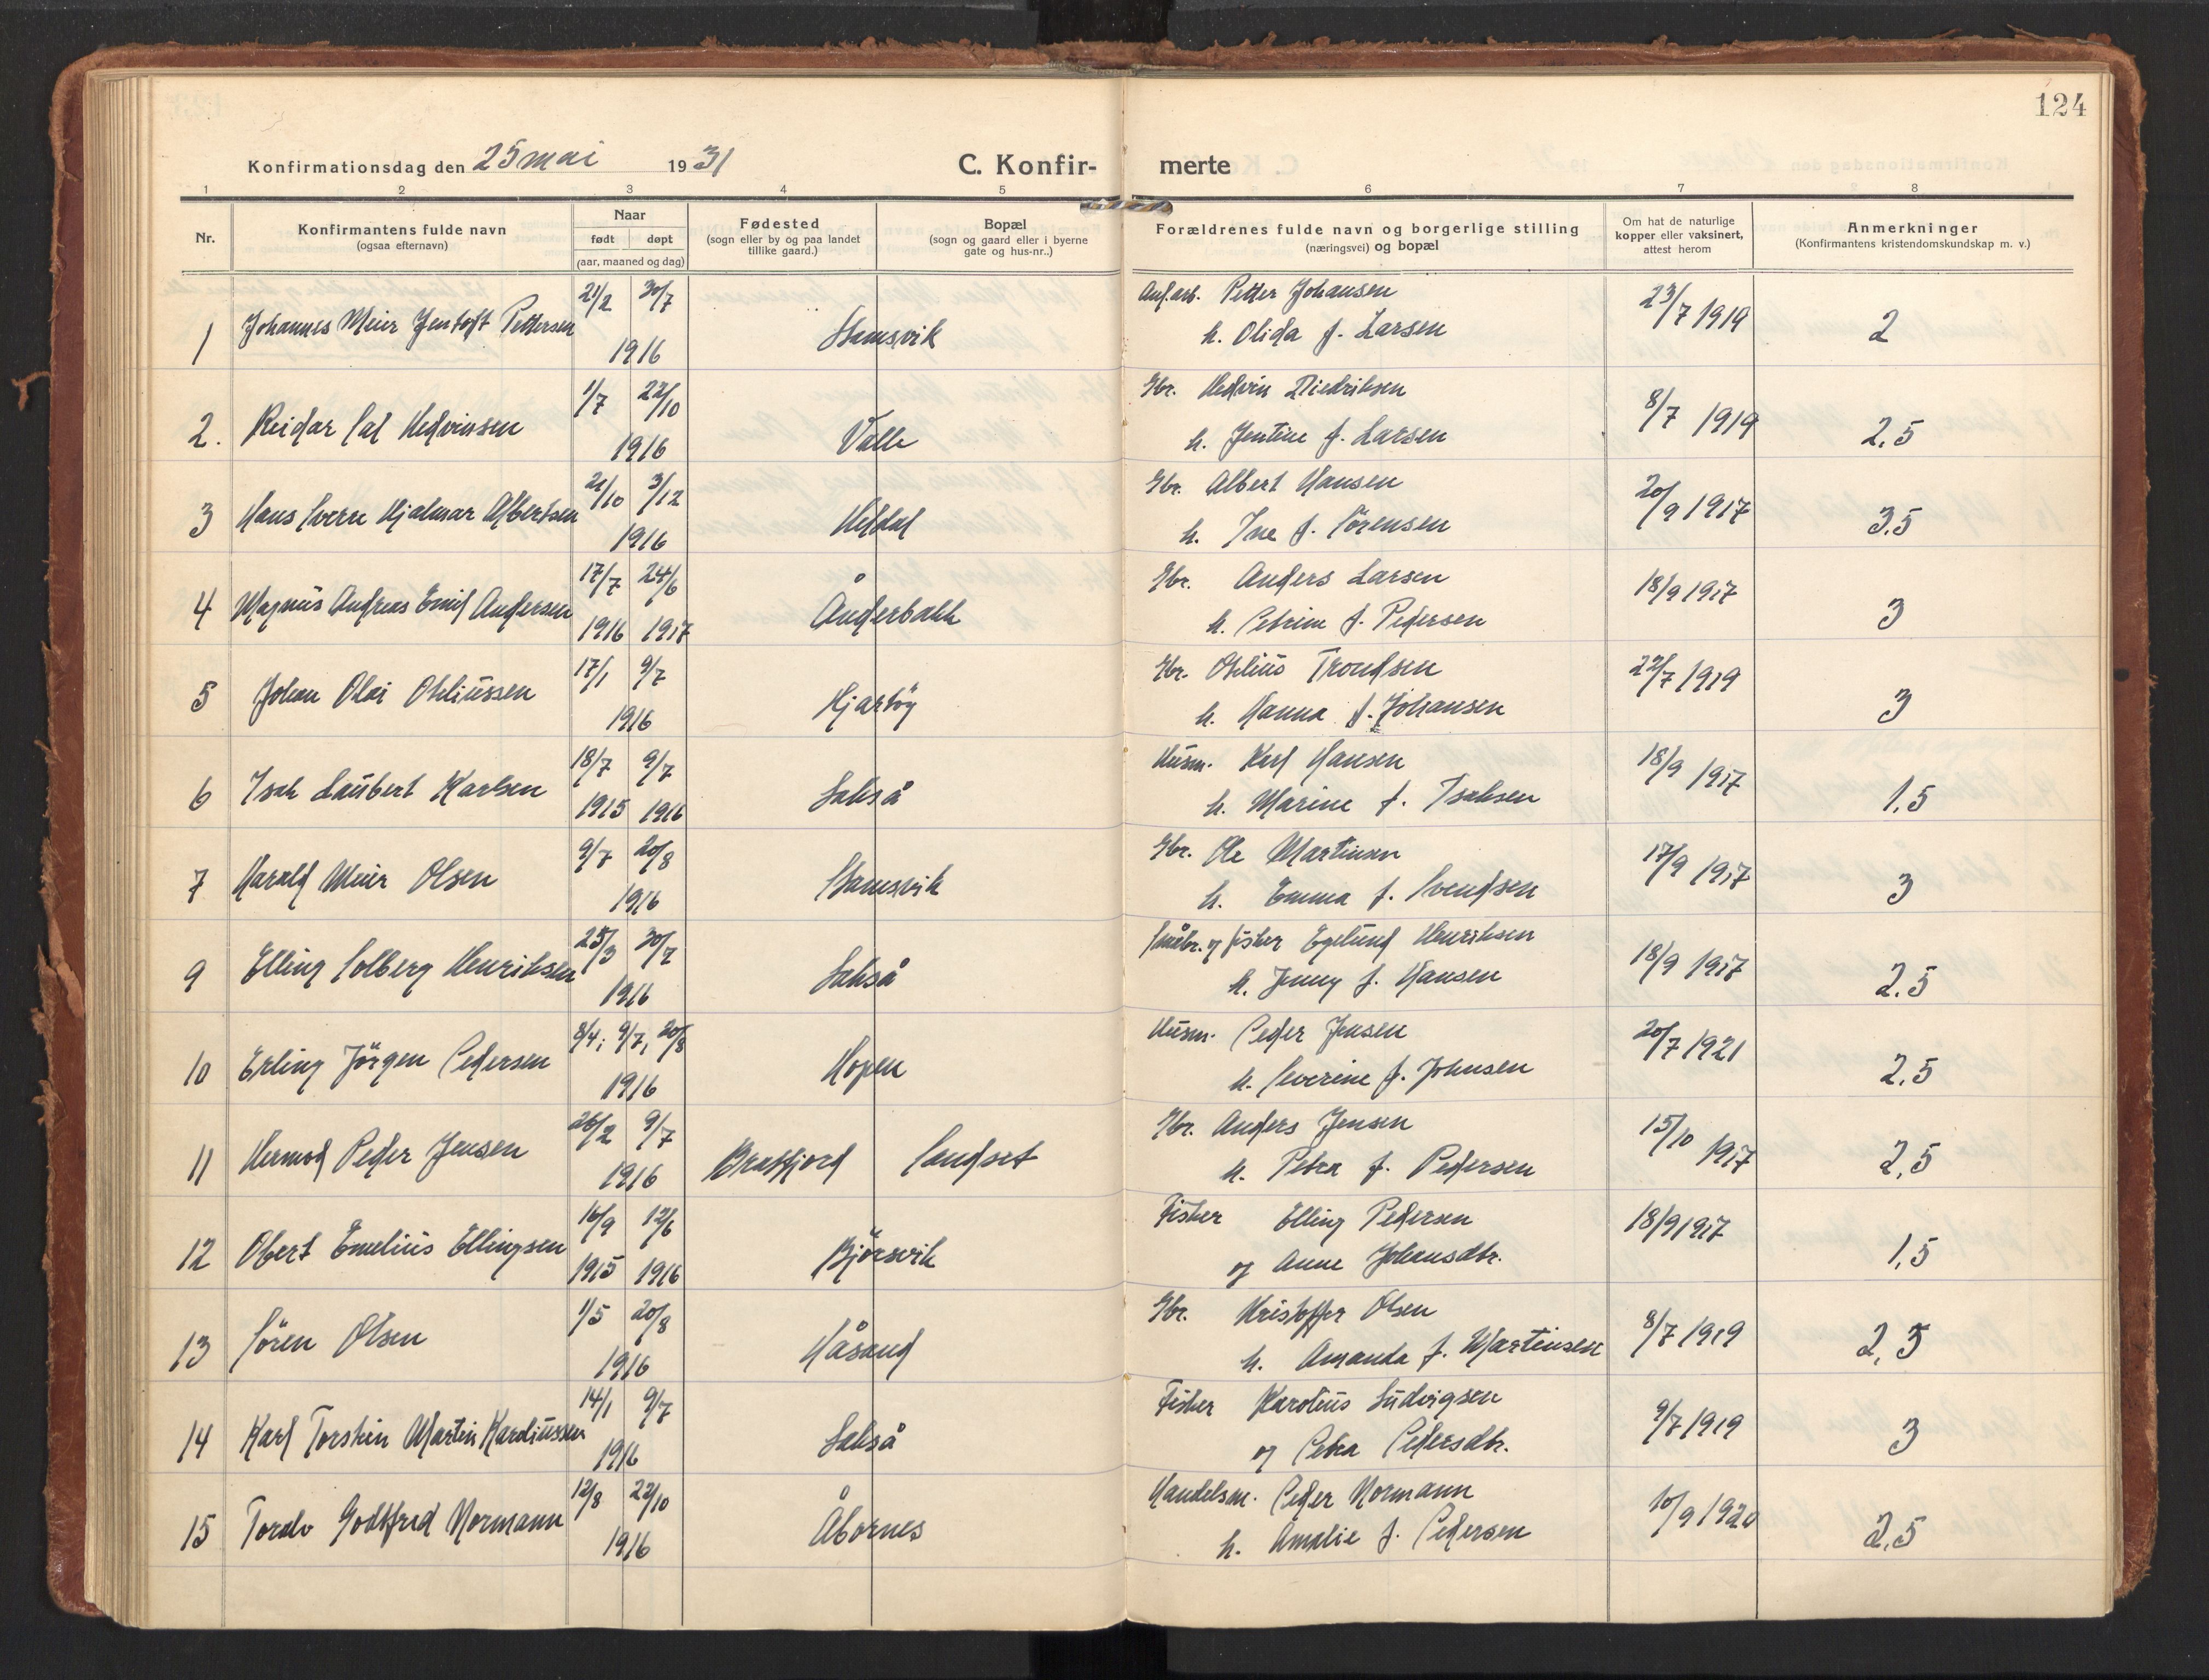 124
Konfirmationsdag den 25 mai 1931
C. Konfir-
merte
1 2 3 4 5 6 7 8
Nr.
Konfirmantens fulde navn
(ogsaa efternavn)
Naar
født døpt
(aar, maaned og dag)
Fødested
(sogn eller by og paa landet
tillike gaard.)
Bopæl
(sogn og gaard eller i byerne
gate og hus-nr..)
Forældrenes fulde navn og borgerlige stilling
(næringsvei) og bopæl
Om hat de naturlige
kopper eller vaksinert,
attest herom
Anmerkninger
(Konfirmantens kristendomskundskap m. v.)
21/2 30/7 Petter Johansen
1 Johannes Meier Jentoft Pettersen 1916 Stamsvik h. Olida f. Larsen 23/7 1919 2
1/7 22/10 Gbr. Hedvin Diedriksen
2. Reidar Hedvinsen 1916 Valle h. Jentine f. Larsen 8/7 1919 2,5
21/10 3/12 Gbr. Albert Hansen
3 Hans Sverre Hjalmar Albertsen 1916 Heldal h. Ine f. Sörensen 20/9 1917 3,5
17/7 24/6 Gbr. Anders Larsen
4 Magnus Andreas Emil Andersen 1916 1917 Ånderbakk h. Petrine f. Pedersen 18/9 1917 3
17/1 9/7 Gbr. Otelius Trondsen
5 Johan Olai Oteliussen 1916 Hjartöy h. Hanna f. Johansen 22/7 1919 3
18/7 9/7 Husm. Karl Hansen
6 Isak Laubert Karlsen 1915 1916 Lakså h. Marine f. Isaksen 18/9 1917 1,5
9/7 20/8 Gbr. Ole Martinsen
7 Harald Meier Olsen 1916 Stamsvik h. Emma f. Svendsen 17/9 1917 3
25/3 30/7 Småbr. og fisker Egelund Henriksen
9 Elling Solberg Henriksen 1916 Lakså h. Jenny f. Hansen 18/9 1917 2.5
8/4; 9/7, 20/8 Husm. Peder Jensen
10 Erling Jörgen Pedersen 1916 Hopen h. Severine f. Johnsen 20/7 1921 2,5
26/2 9/7 Gbr. Anders Jensen
11 Hermod Peder Jensen 1916 Bratfjord Sandset h. Petra f. Pedersen 15/10 1917 2,5
16/9 12/6 Fisker Elling Pedersen
12 Obert Emelius Ellingsen 1915 1916 Björsvik og Anne Johansdtr. 18/9 1917 1,5
1/5 20/8 Gbr. Kristoffer Olsen
13 Sören Olsen 1916 Håsand h. Amanda f. Martinsen 8/7 1919 2,5
14/1 9/7 Fisker Karolius Ludvigsen
14 Karl Torstein Martin Karoliussen 1916 Lakså og Petra Pedersdtr. 9/7 1919 3
12/8 22/10 Handelsm. Peder Normann
15 Toralv Godtfred Normann 1916 Åbornes h. Amalie f. Pedersen 10/9 1920 2,5